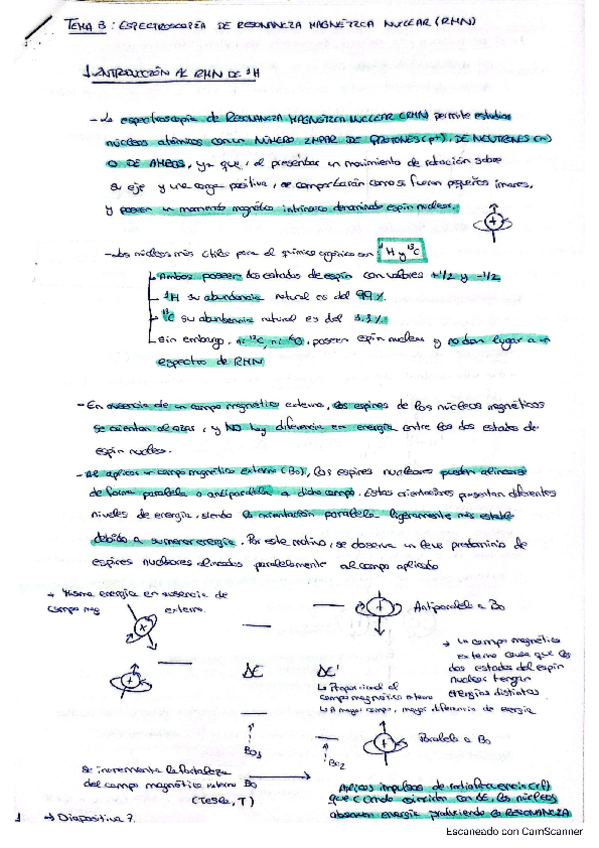 TEMA 3: ESPECTROSCOPÍA DE RESONANCIA MAGNÉTICA NUCLEAR (RMN)
1. INTRODUCCIÓN AL RMN DE ¹H
- La espectroscopía de RESONANCIA MAGNÉTICA NUCLEAR (RMN) permite estudiar
núcleos atómicos con un NÚMERO IMPAR DE PROTONES (p+), DE NEUTRONES (n)
O DE AMBOS, ya que, al presentar un movimiento de rotación sobre
su eje y una carga positiva, se comportarán como si fueran pequeños imanes,
y poseen un momento magnético intrínseco denominado espín nuclear.
- Los núcleos más útiles para el químico orgánico son ¹H y ¹³C
Ambos poseen dos estados de espín con valores +1/2 y -1/2
¹H su abundancia natural es del 99%.
¹³C su abundancia natural es del 1.1%.
Sin embargo, ni ¹²C, ni ¹⁶O, poseen espín nuclear y no dan lugar a un
espectro de RMN
- En ausencia de un campo magnético externo, los espines de los núcleos magnéticos
se orientan al azar, y NO hay diferencia en energía entre los dos estados de
espín nuclear.
- Al aplicar un campo magnético externo (B0), los espines nucleares pueden alinearse
de forma paralela o antiparalela a dicho campo. Estas orientaciones presentan diferentes
niveles de energía, siendo la orientación paralela ligeramente más estable
debido a su menor energía. Por este motivo, se observa un leve predominio de
espines nucleares alineados paralelamente al campo aplicado
→ Misma energía en ausencia de
campo mag externo.
Antiparalelo a B0
→ un campo magnético
externo causa que los
dos estados del espín
nuclear tengan
energías distintas
ΔE
ΔE'
↳ Proporcional al
campo magnético externo
↳ A mayor campo, mayor diferencia de energía
B01
B02
Paralelo a B0
Se incrementa la fortaleza
del campo magnético externo B0
(Tesla, T)
Aplicas impulsos de radiofrecuencia (rf)
que cuando coinciden con ΔE, los núcleos
absorben energía produciendo la RESONANCIA
1 → Diapositiva 7.
Escaneado con CamScanner